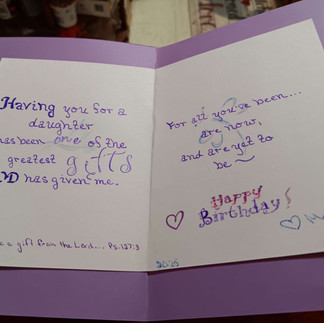 Having you for a
daughter
has been one of the
greatest gifts
has given me.
a gift from the Lord... Ps. 127:3
For all you've been...
are now,
and are yet to
be
Happy
Birthday!